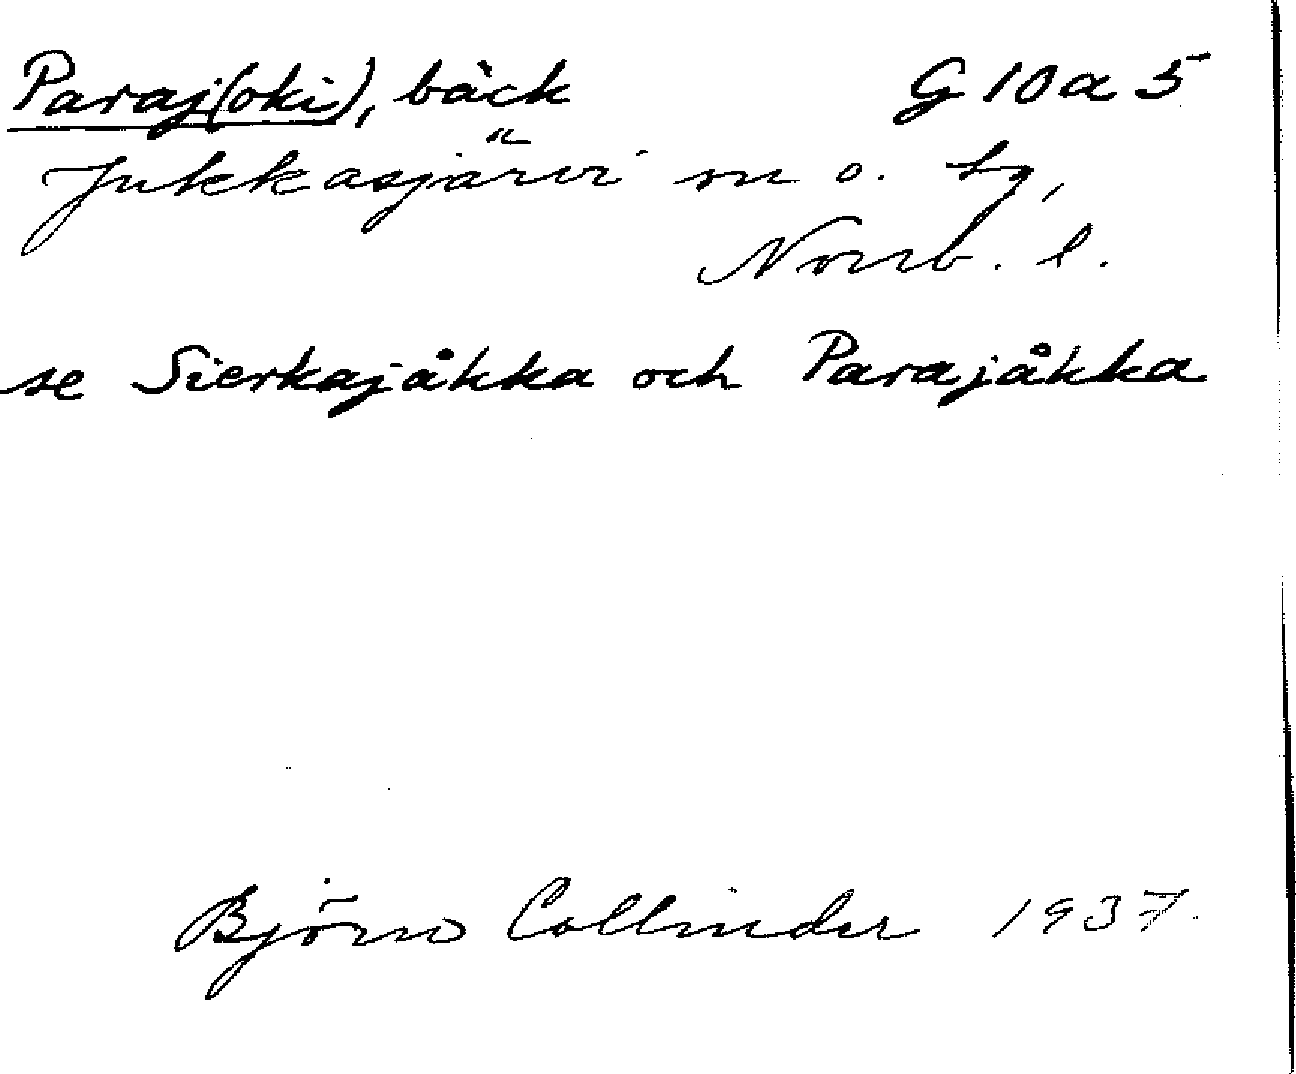 Paraj(oki), bäck G10a5
Jukkasjärvi sn o. tg,
Norrb. l.
se Sierkajåkka och Parajåkka
Björn Collinder 1937.